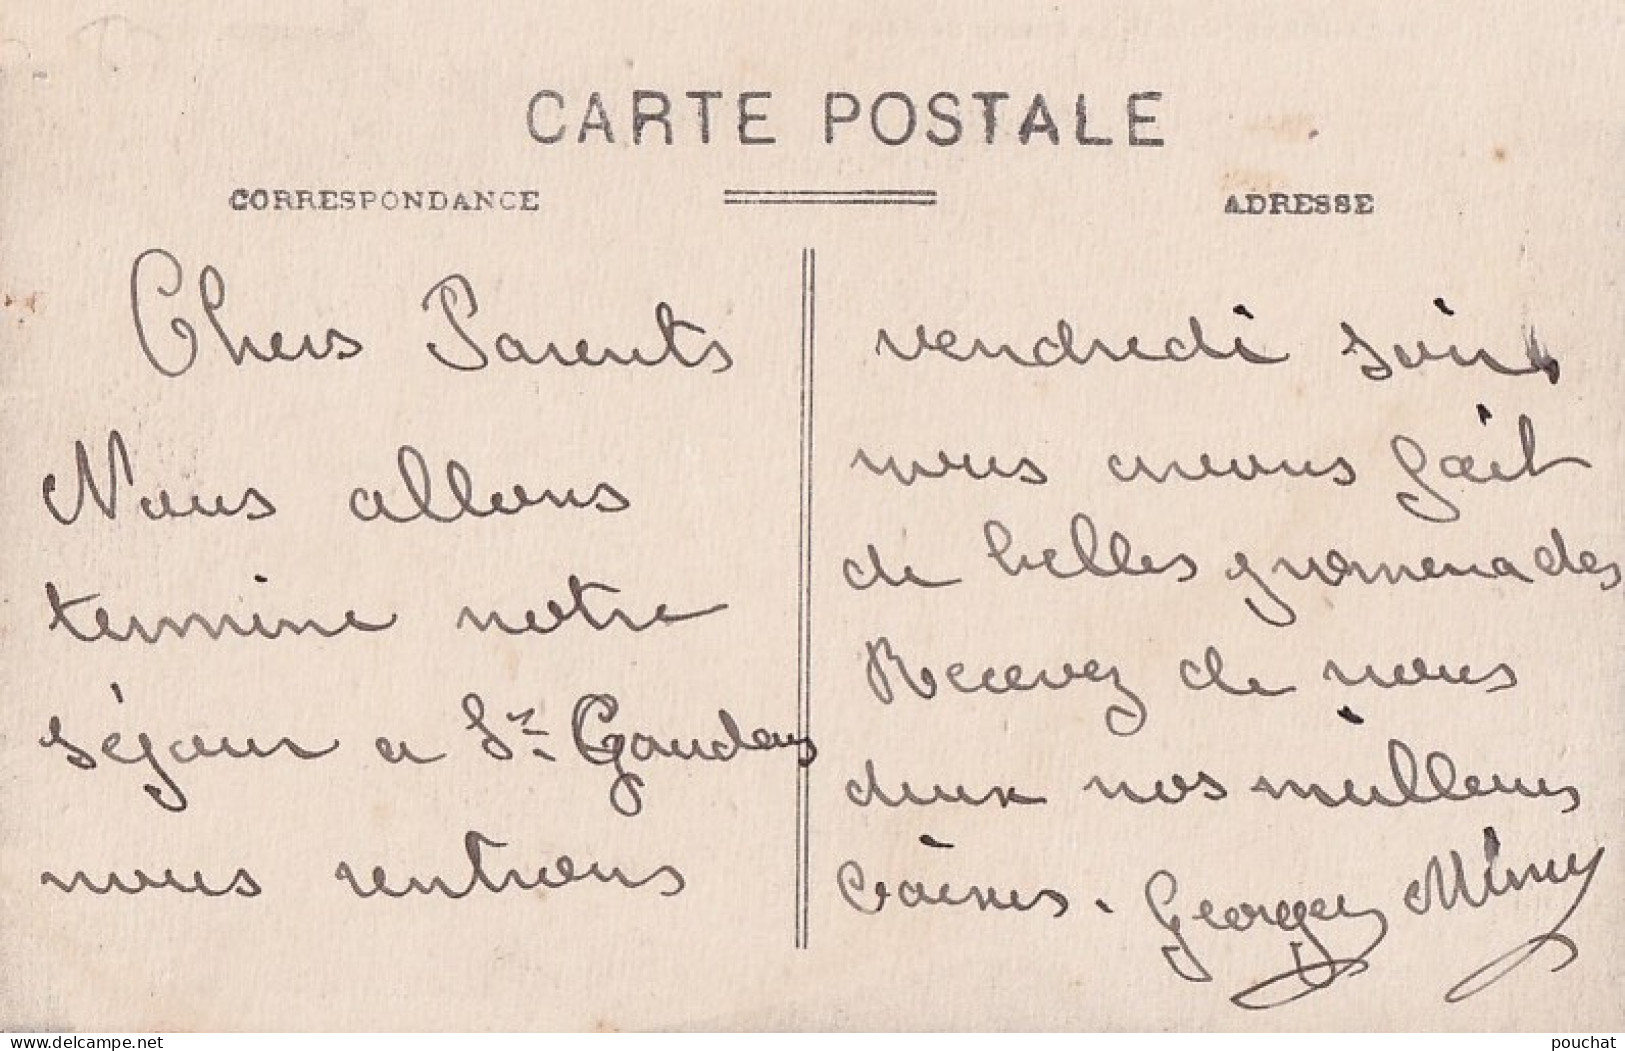 CARTE POSTALE
CORRESPONDANCE
ADRESSE
Chers Parents
Nous allons
termine notre
séjour a St. Gaudens
nous rentrons
vendredi soir
nous avons fait
de belles promenades
Recevez de nous
deux nos meilleurs
baisers. Georges Mimy
www.delcampe.net
pouchat